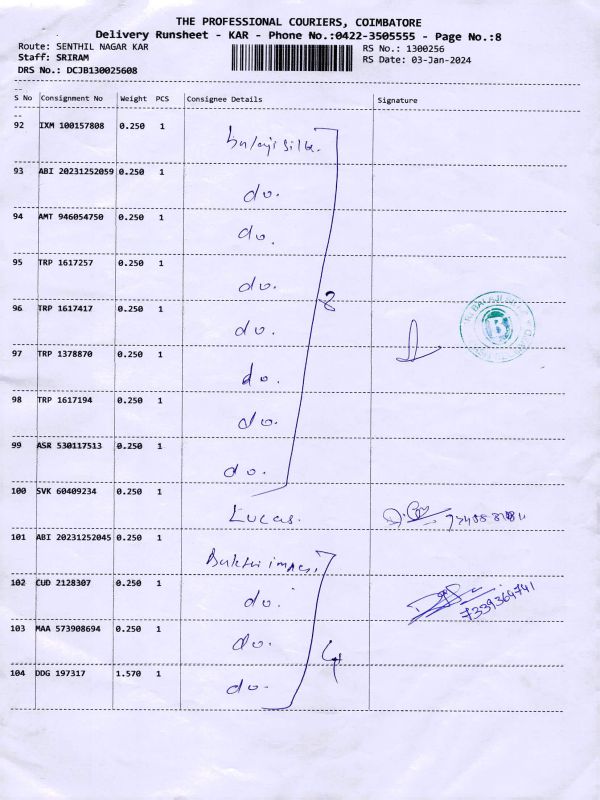 THE PROFESSIONAL COURIERS, COIMBATORE
Delivery Runsheet - KAR - Phone No.:0422-3505555 - Page No.:8
Route: SENTHIL NAGAR KAR RS No.: 1300256
Staff: SRIRAM RS Date: 03-Jan-2024
DRS No.: DCJB130025608
S No Consignment No Weight PCS Consignee Details Signature
92 IXM 100157808 0.250 1 balaji silk.
93 ABI 20231252059 0.250 1 do.
94 AMT 946054750 0.250 1 do.
95 TRP 1617257 0.250 1 do.
8
96 TRP 1617417 0.250 1 do.
B
97 TRP 1378870 0.250 1 do.
98 TRP 1617194 0.250 1 do.
99 ASR 530117513 0.250 1 do.
100 SVK 60409234 0.250 1 Lucas.
101 ABI 20231252045 0.250 1
102 CUD 2128307 0.250 1 do. 7339364741
103 MAA 573908694 0.250 1 do.
4
104 DDG 197317 1.570 1 do.